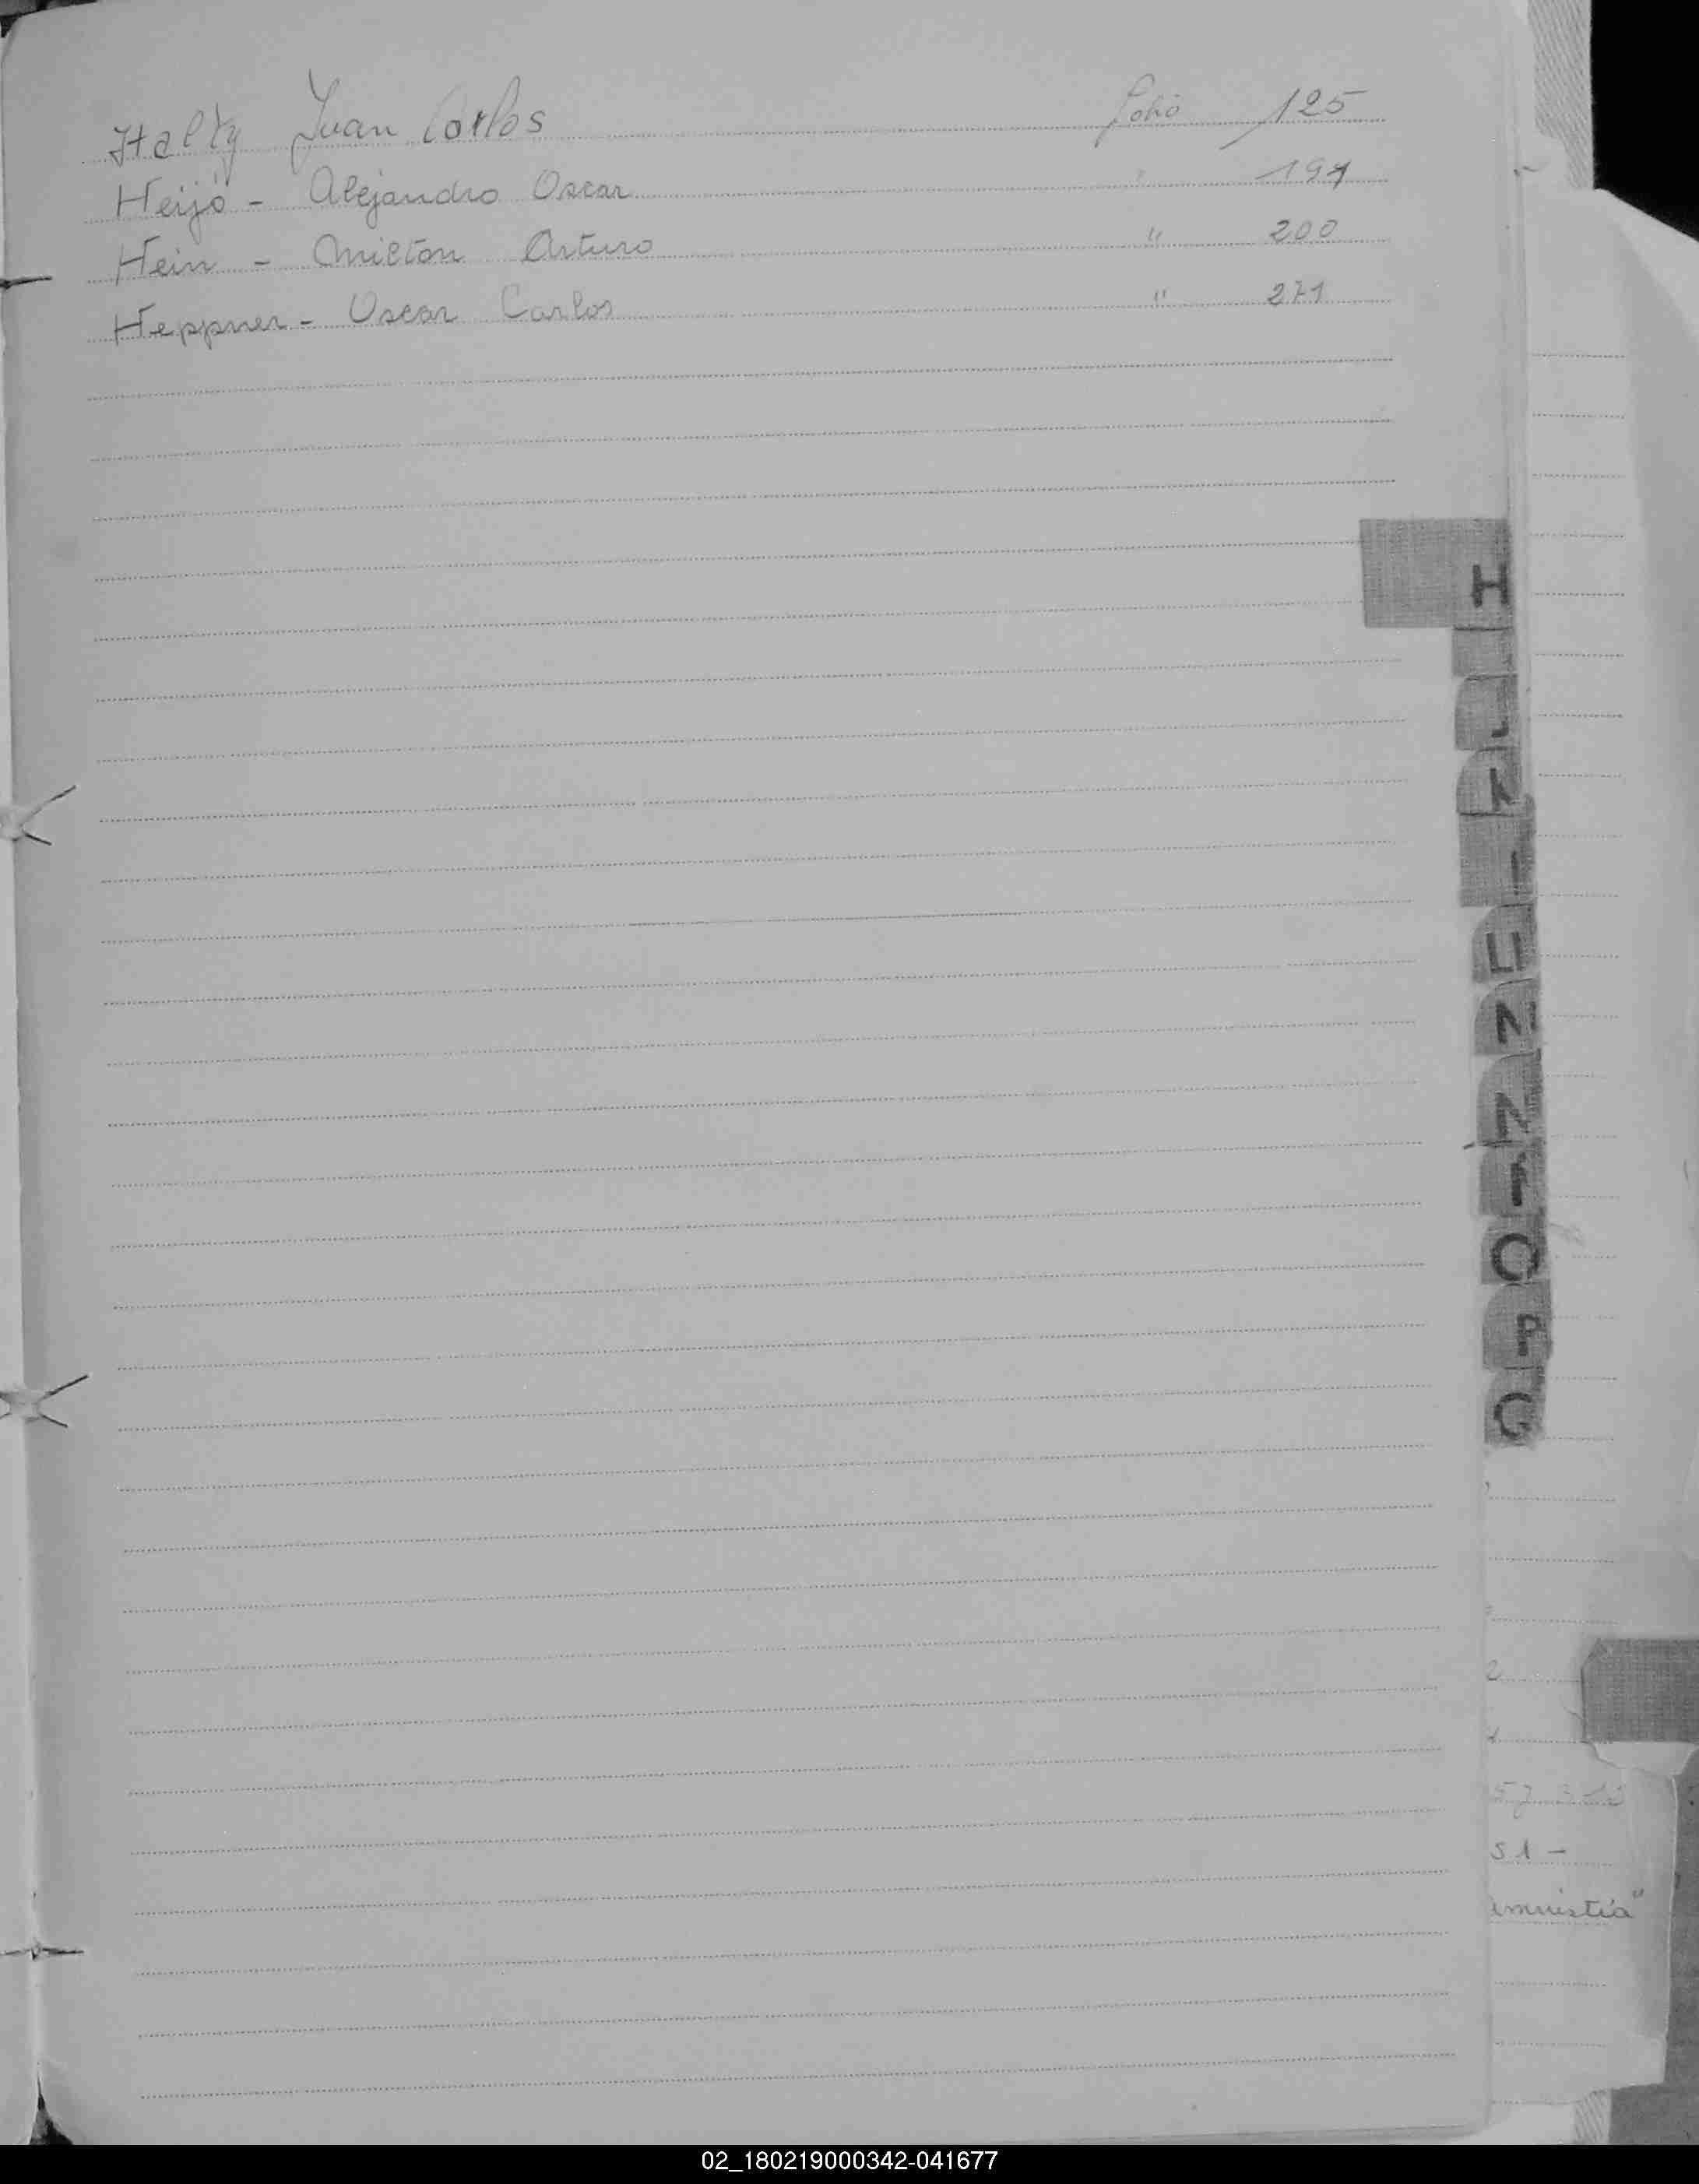 Halty Juan Carlos folio 125
Heijó - Alejandro Oscar " 197
Hein - Milton Arturo " 200
Heppner - Oscar Carlos " 271
H
J
N
O
P
Q
51 -
02_180219000342-041677